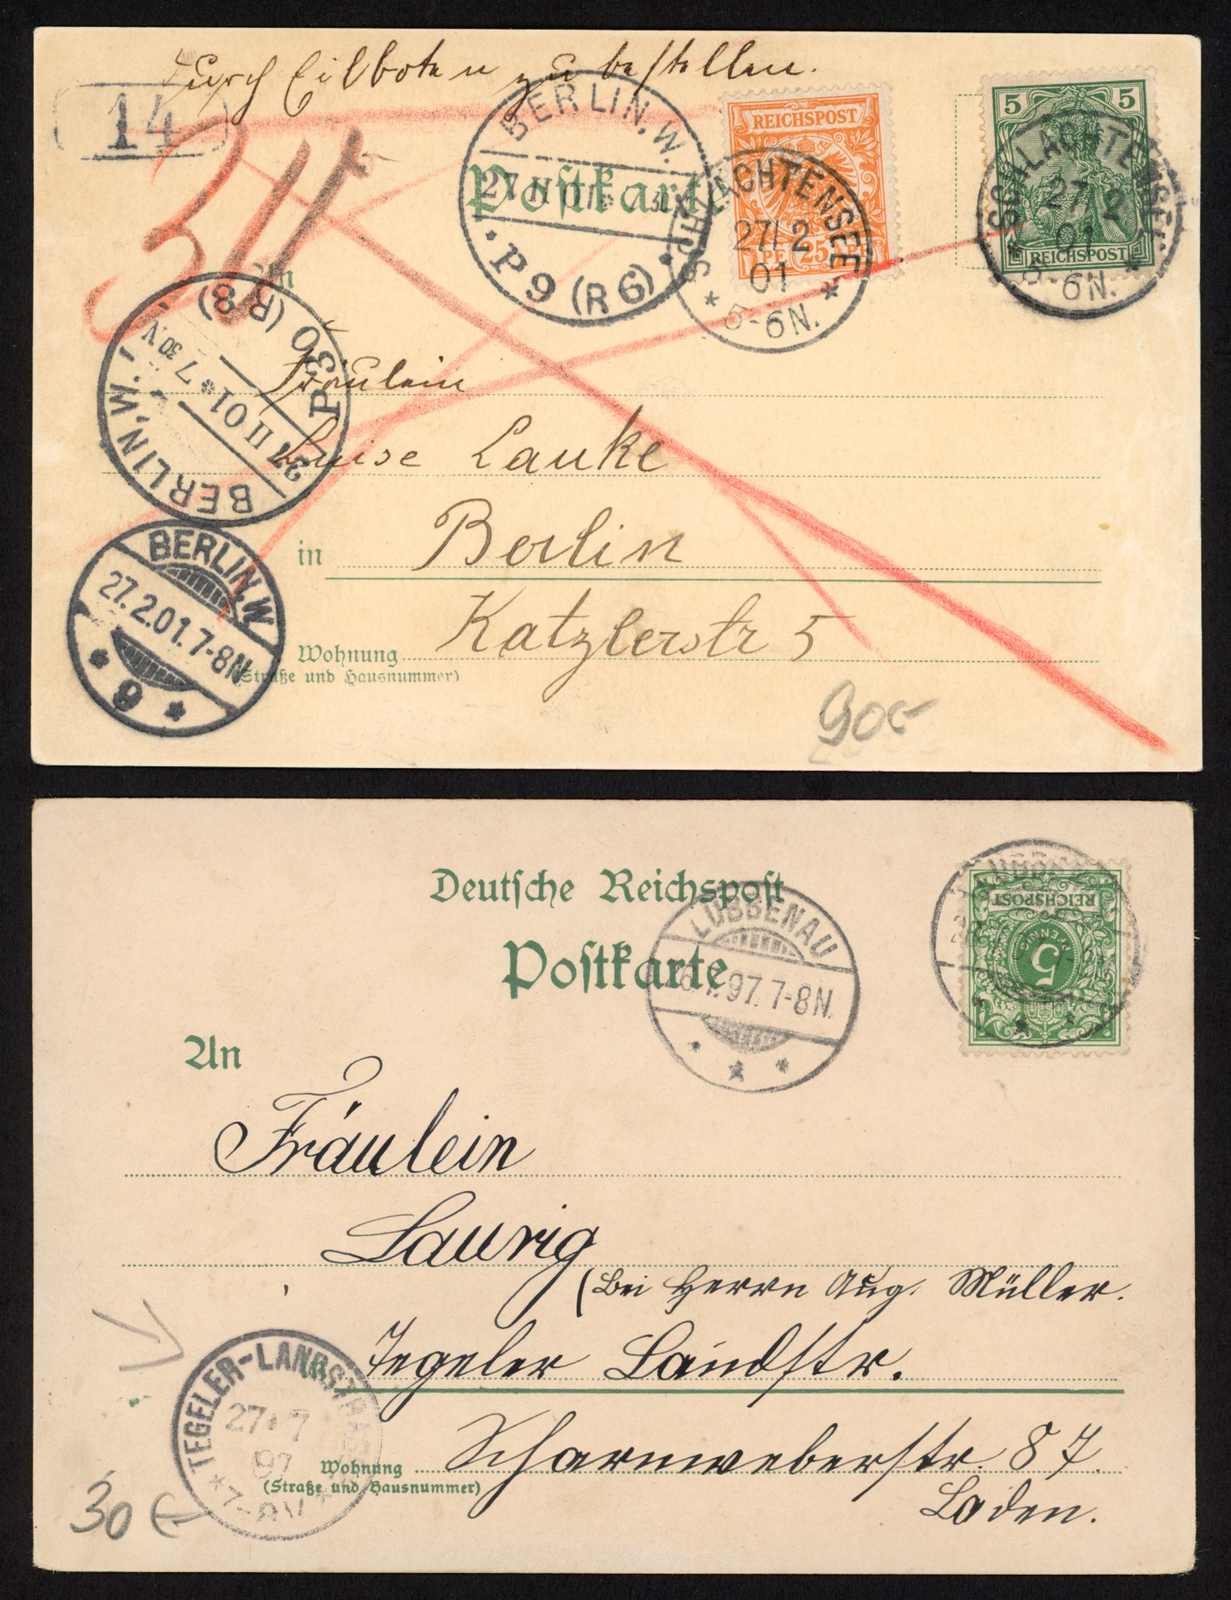 Durch Eilboten zu bestellen.
14
BERLIN.W.
27 II 01
P9 (R6)
REICHSPOST
25
SCHLACHTENSEE
27/2
01
5-6N.
5 5
REICHSPOST
SCHLACHTENSEE
27/2
01
5-6N.
Postkarte
An
BERLIN.W.
27 II 01 * 7 30 N.
P30 (R8)
Fräulein
Luise Lauke
in Berlin
BERLIN.W
27.2.01.7-8N.
* 9 *
Wohnung Katzlerstr 5
(Straße und Hausnummer)
900-
Deutsche Reichspost
Postkarte
LÜBBENAU
97.7-8N.
LÜBBENAU
REICHSPOST
5
PFENNIG
An
Fräulein
Laurig
(bei Herrn Aug. Müller.
Tegeler Landstr.
TEGELER-LANDSTRASSE
27 7
97
7-8V
Wohnung Scharnweberstr. 87.
(Straße und Hausnummer)
Laden.
30 €